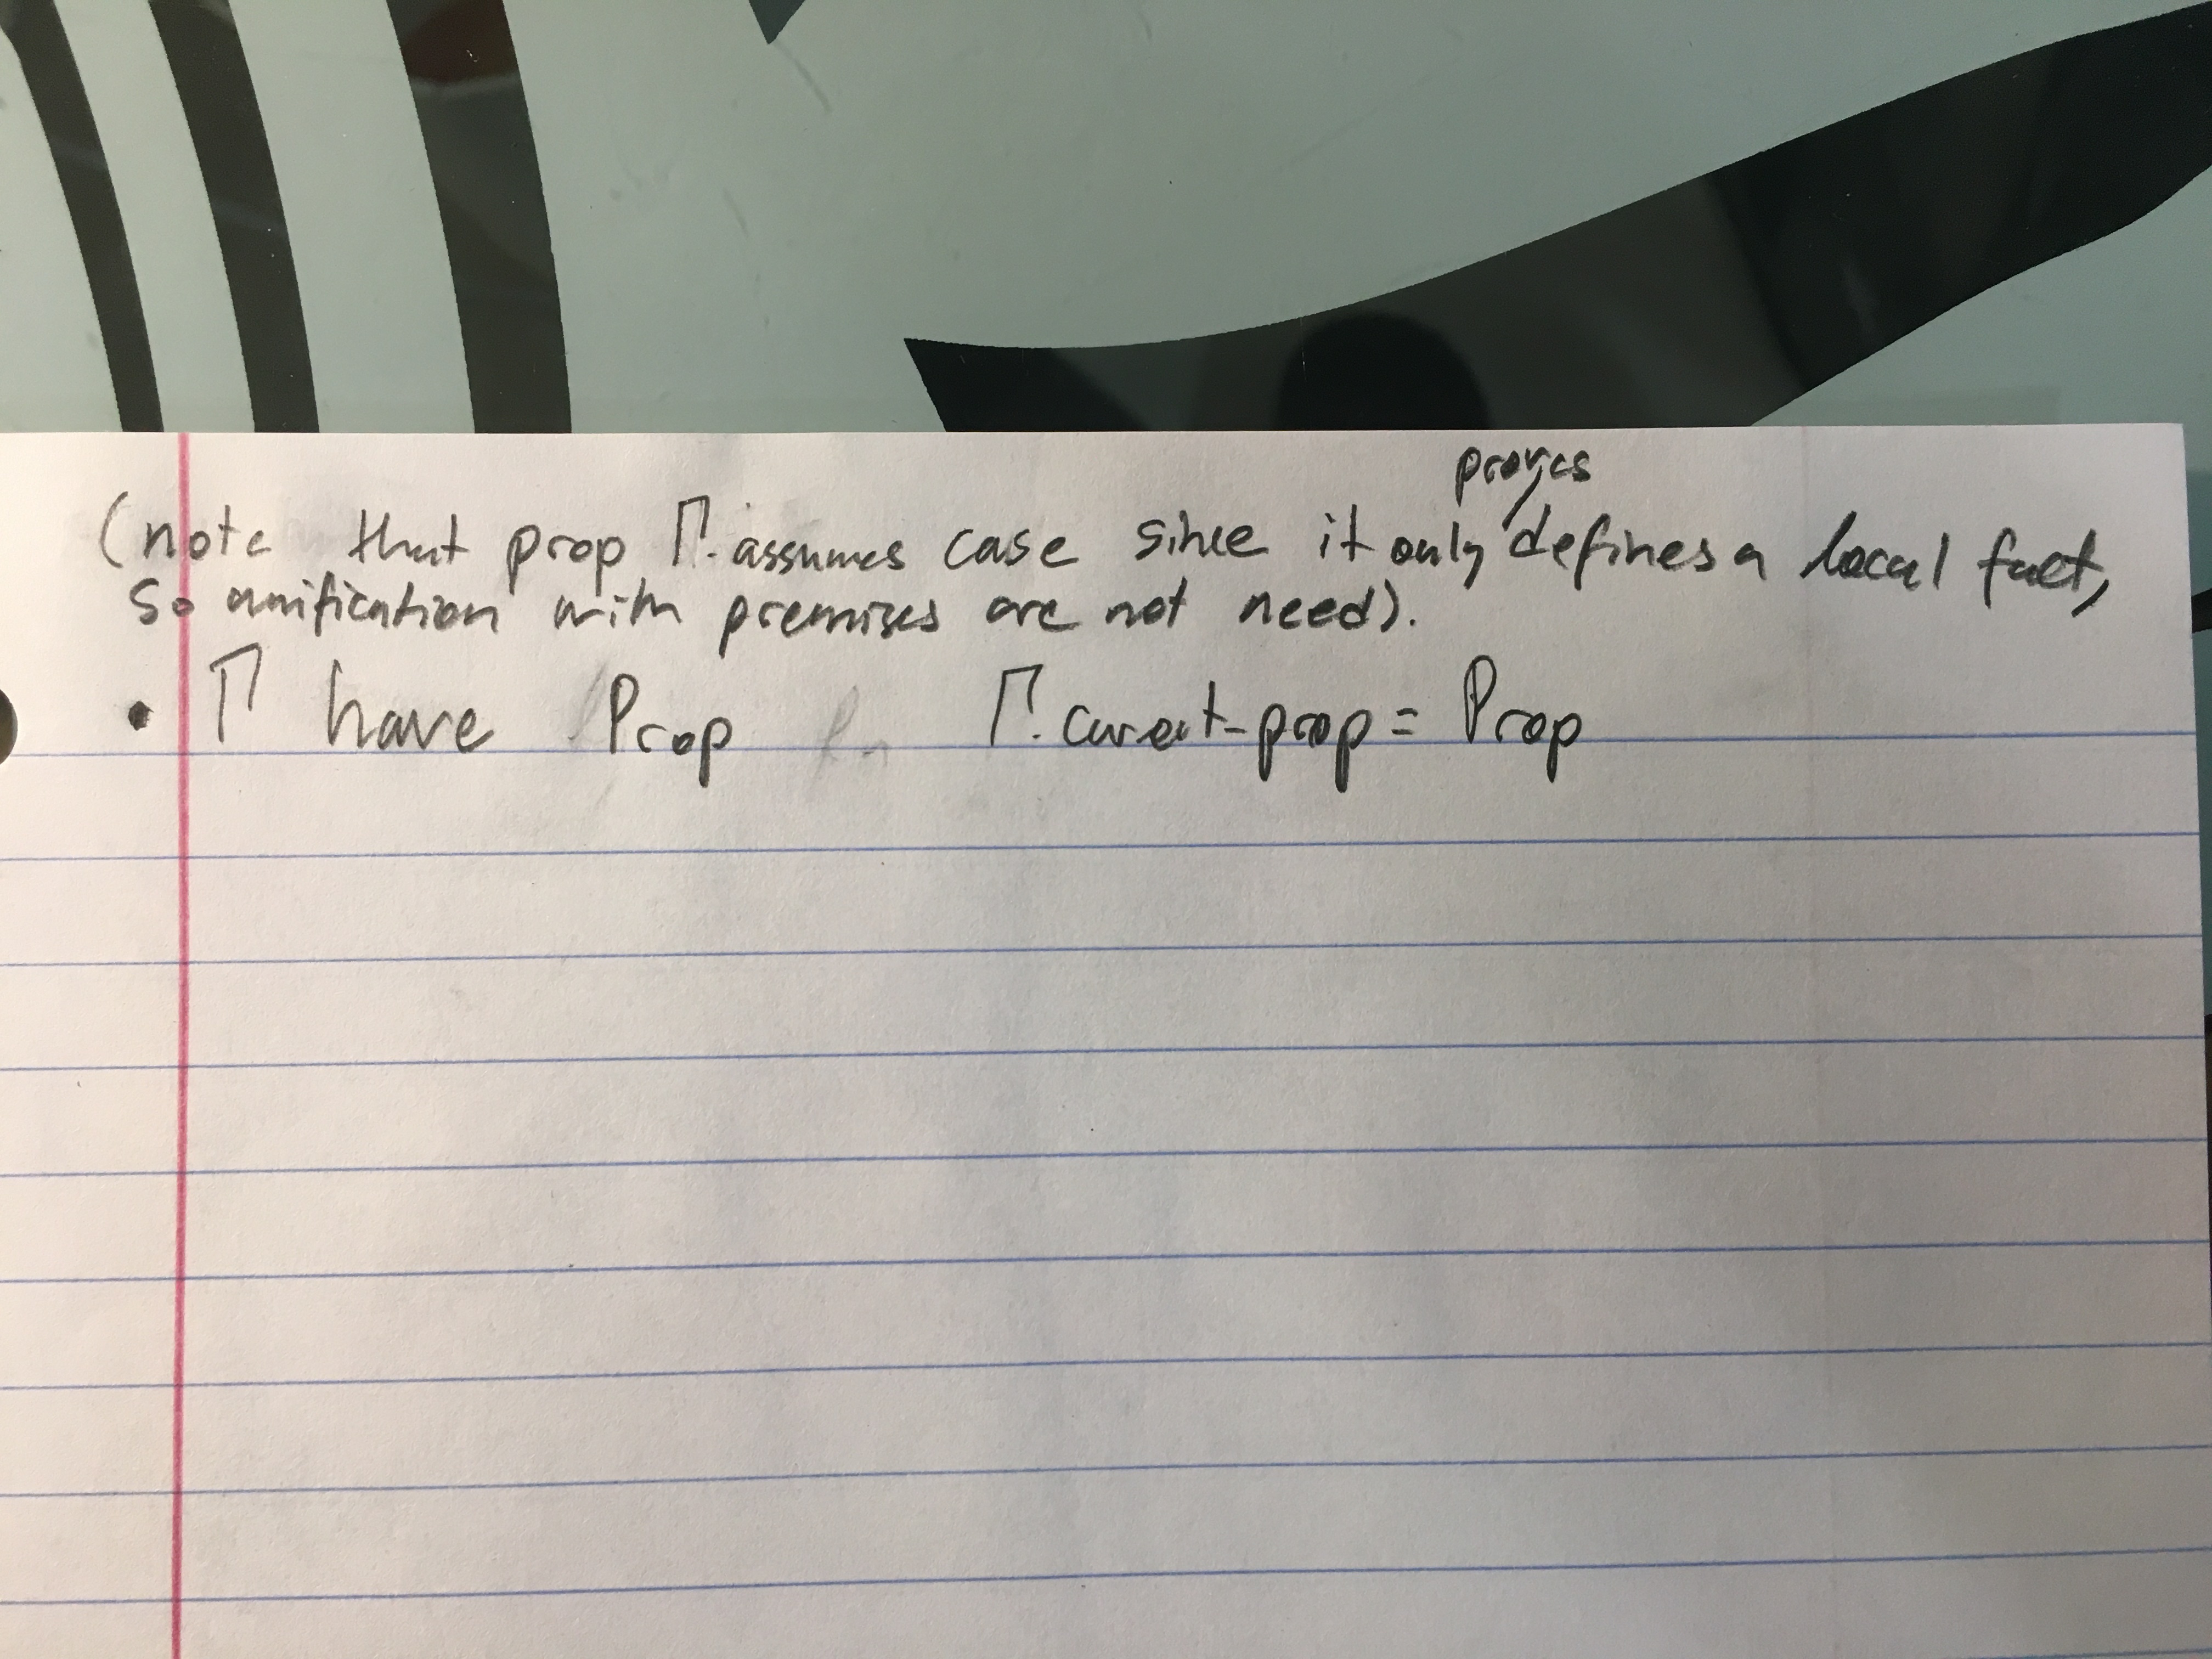 proves
(note that prop Γ.assumes case since it only defines a local fact,
so unification with premises are not need).
• Γ have Prop Γ.current-prop = Prop